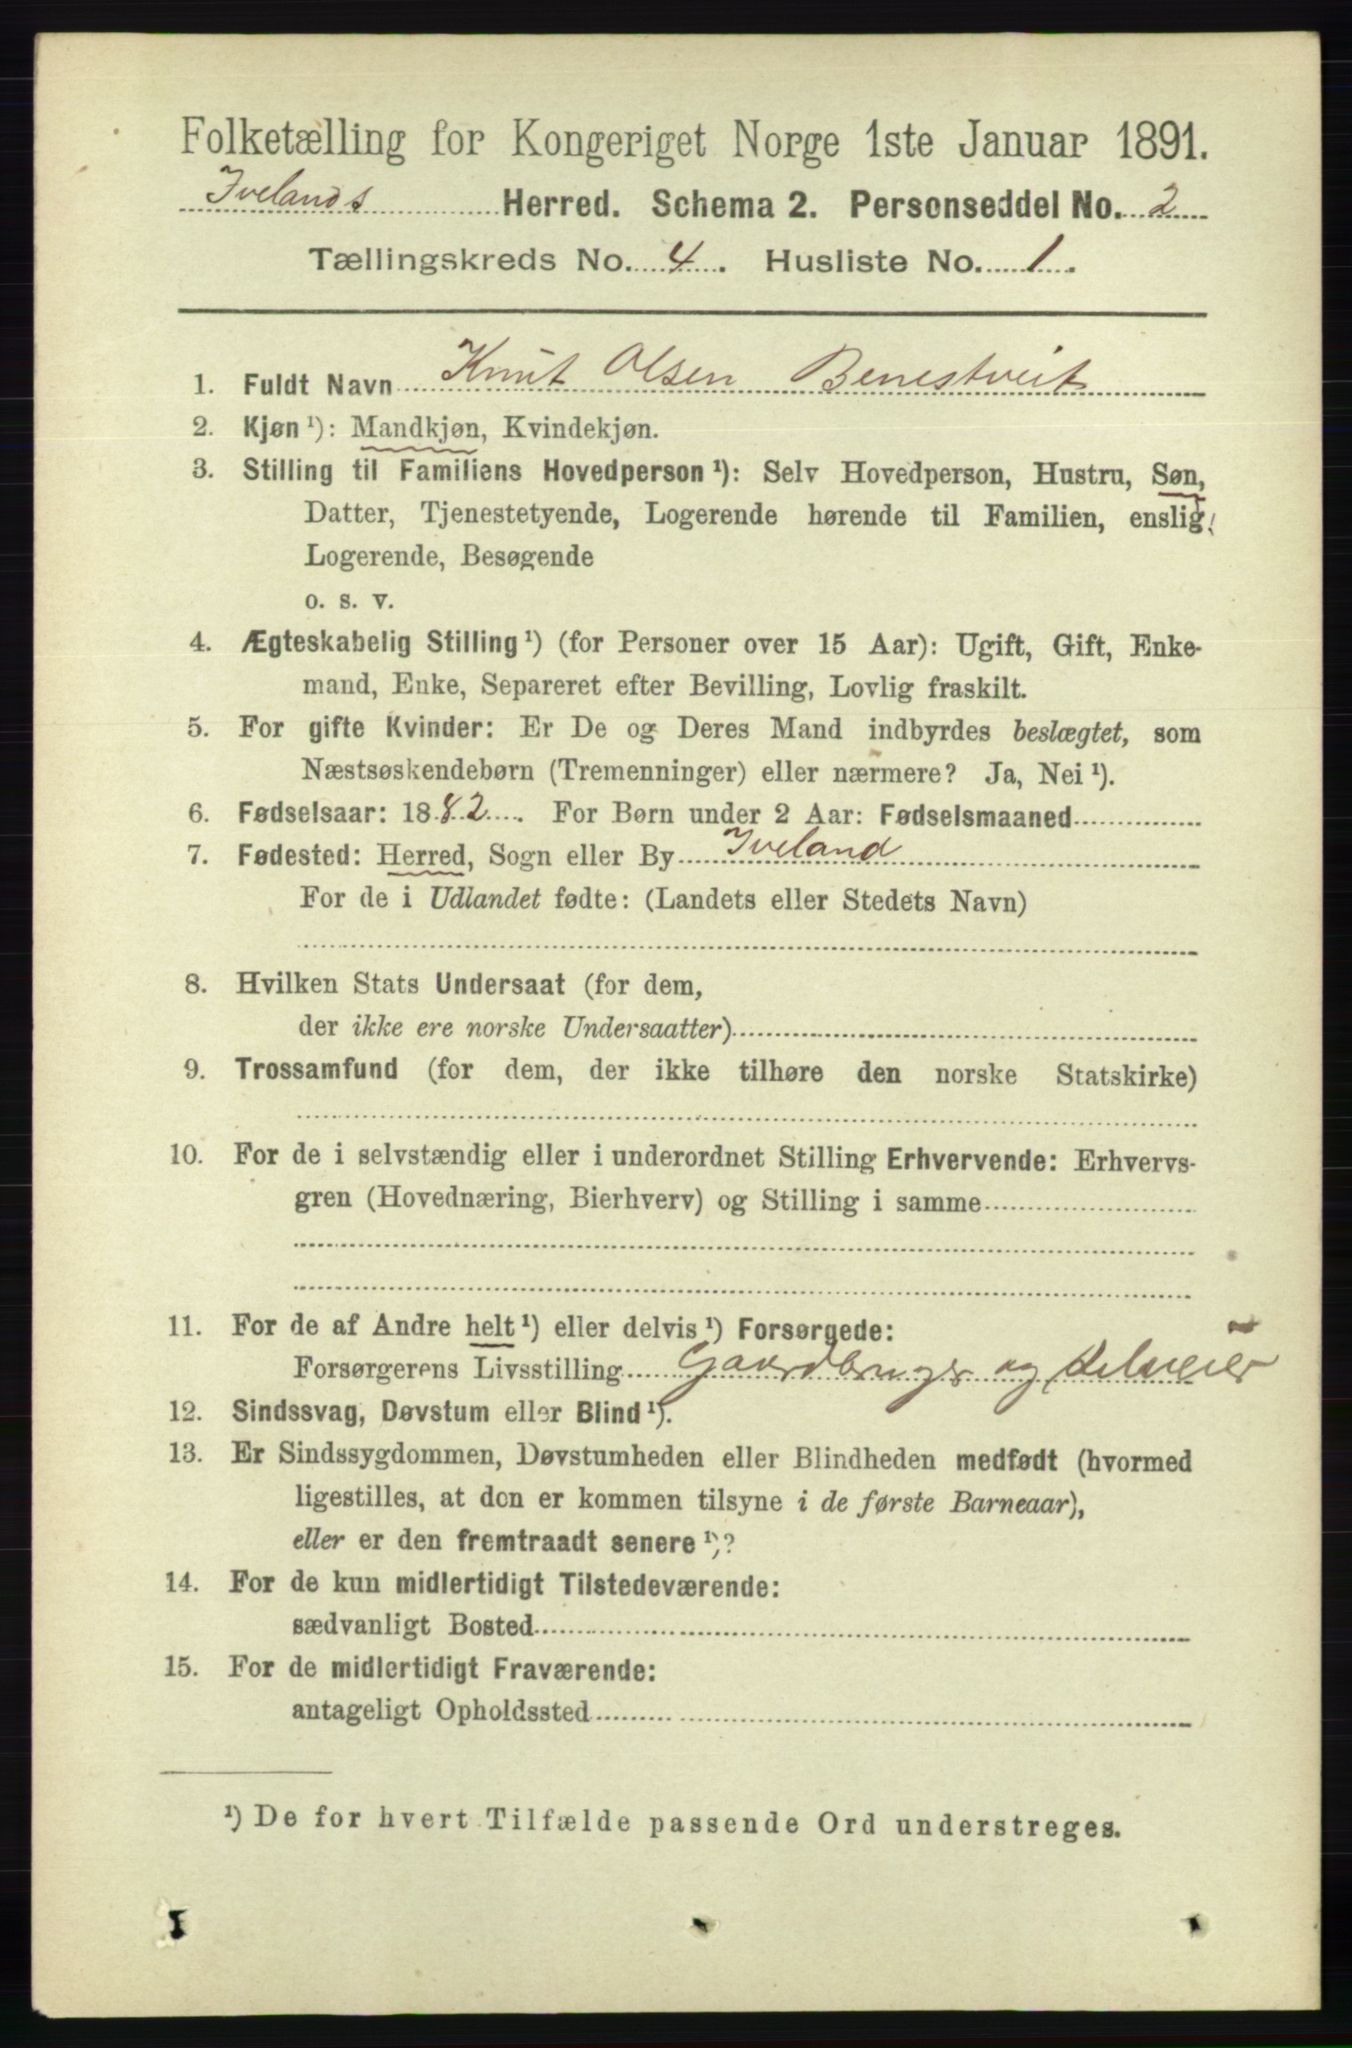 Folketælling for Kongeriget Norge 1ste Januar 1891.
Ivelands Herred. Schema 2. Personseddel No. 2
Tællingskreds No. 4. Husliste No. 1.
1. Fuldt Navn Knut Olsen Benestveit
2. Kjøn ¹): Mandkjøn, Kvindekjøn.
3. Stilling til Familiens Hovedperson ¹): Selv Hovedperson, Hustru, Søn,
Datter, Tjenestetyende, Logerende hørende til Familien, enslig
Logerende, Besøgende
o. s. v.
4. Ægteskabelig Stilling ¹) (for Personer over 15 Aar): Ugift, Gift, Enke-
mand, Enke, Separeret efter Bevilling, Lovlig fraskilt.
5. For gifte Kvinder: Er De og Deres Mand indbyrdes beslægtet, som
Næstsøskendebørn (Tremenninger) eller nærmere? Ja, Nei ¹).
6. Fødselsaar: 1882. For Børn under 2 Aar: Fødselsmaaned
7. Fødested: Herred, Sogn eller By Iveland
For de i Udlandet fødte: (Landets eller Stedets Navn)
8. Hvilken Stats Undersaat (for dem,
der ikke ere norske Undersaatter)
9. Trossamfund (for dem, der ikke tilhøre den norske Statskirke)
10. For de i selvstændig eller i underordnet Stilling Erhvervende: Erhvervs-
gren (Hovednæring, Bierhverv) og Stilling i samme
11. For de af Andre helt ¹) eller delvis ¹) Forsørgede:
Forsørgerens Livsstilling Gaardbruger og Selveier
12. Sindssvag, Døvstum eller Blind ¹).
13. Er Sindssygdommen, Døvstumheden eller Blindheden medfødt (hvormed
ligestilles, at den er kommen tilsyne i de første Barneaar),
eller er den fremtraadt senere ¹)?
14. For de kun midlertidigt Tilstedeværende:
sædvanligt Bosted
15. For de midlertidigt Fraværende:
antageligt Opholdssted
¹) De for hvert Tilfælde passende Ord understreges.